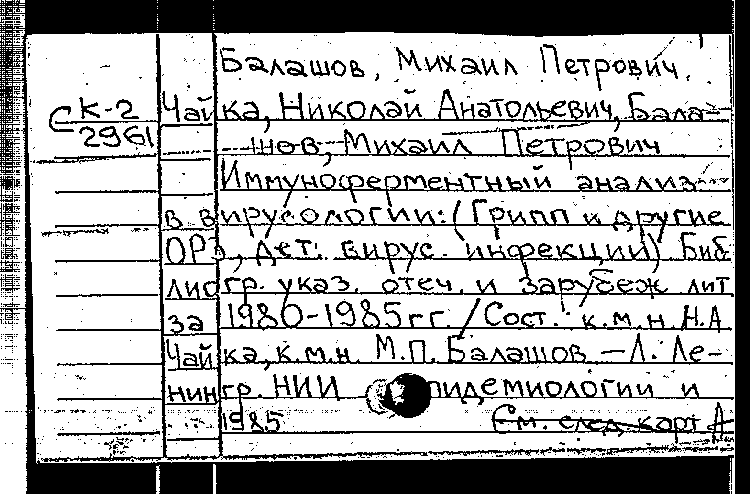 Балашов, Михаил Петрович.
СК-2 Чайка, Николай Анатольевич, Бала-
2961 шов, Михаил Петрович
Иммуноферментный анализ
в вирусологии: (Грипп и другие
ОРЗ, дет. вирус. инфекции) Биб
лиогр. указ. отеч. и зарубеж лит
за 1980-1985гг. / Сост. к.м.н Н.А
Чайка, к.м.н М.П. Балашов – Л. Ле-
нингр. НИИ эпидемиологии и
1985 См. след. карт